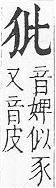 音婢似豕
又音皮